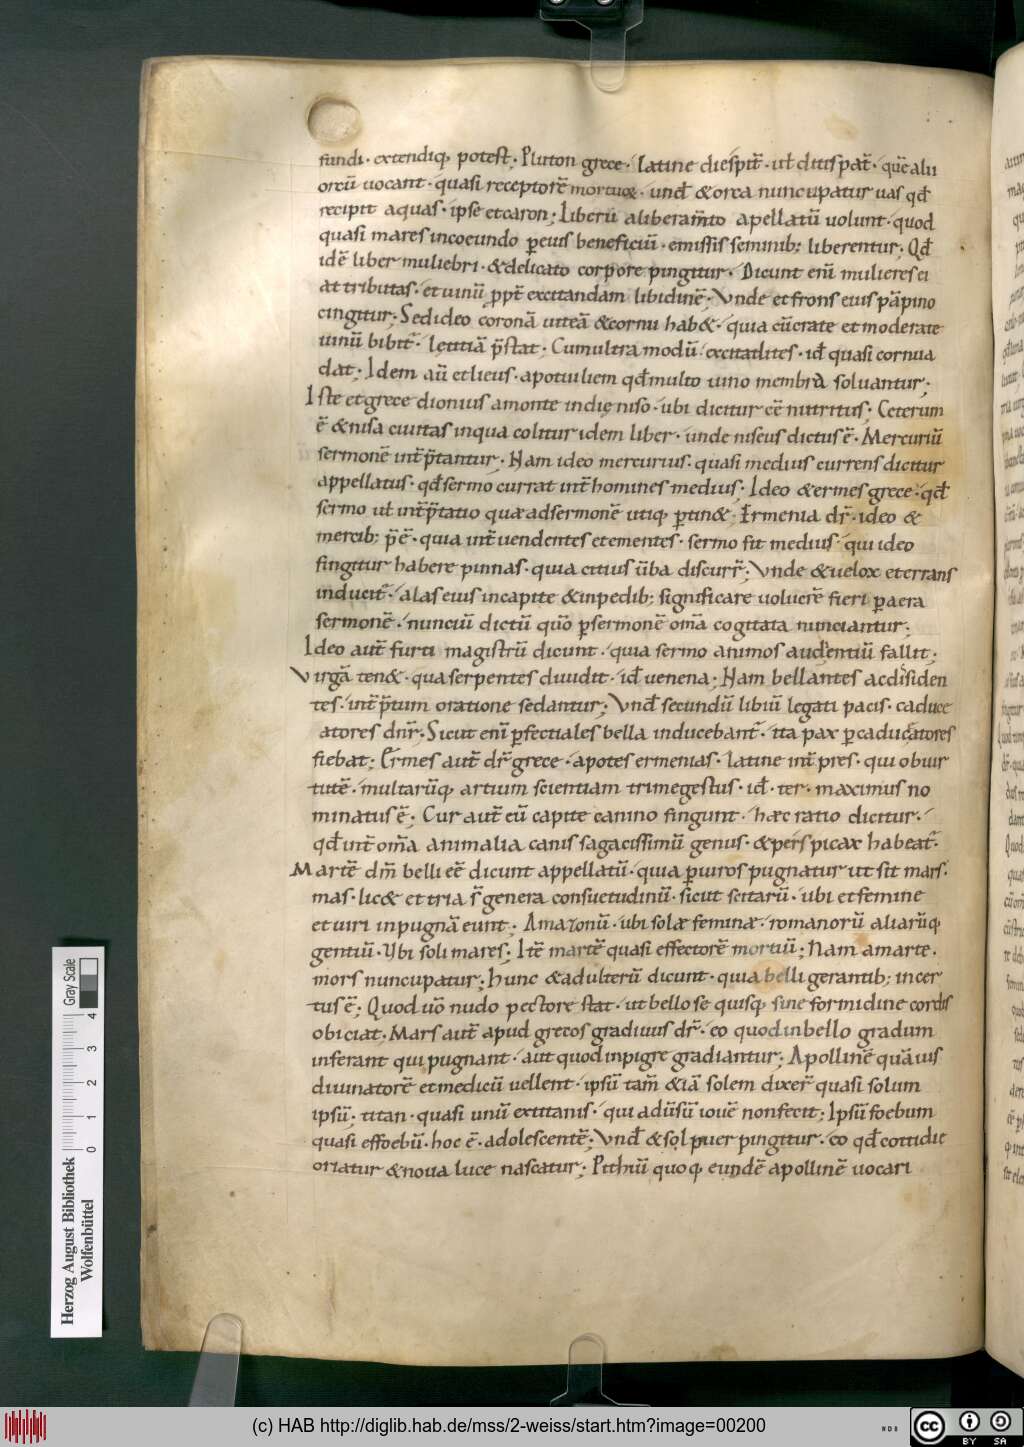 fundi· extendiq, potest; Pluton grece· latine diespit̄· ut̄ ditispat̄· quē alii
orcū uocant· quasi receptorē mortuoꝝ· und̄ & orca nuncupatur uas qd̄
recipit aquas· ipse et caron; Liberū a liberam̄to apellatū uolunt· quod
quasi mares in coeundo ꝑ eius beneficiū· emissis seminib; liberentur; Qd̄
idē liber muliebri· & delicato corpore pingitur· Dicunt enī mulieres ei
attributas· et uinū ꝓpt̄ excitandam libidinē; Vnde et frons eius pāpino
cingitur; Sed ideo coronā uiteā & cornu hab&· quia cū grate et moderate
uinū bibit̄· lętitiā p̄stat· Cum ultra modū· excitat lites· id̄ quasi cornua
dat; Idem aū et lieus· apotuiliem qd̄ multo uino membra soluantur;
Iste et grece dionius a monte indię niso· ubi dicitur ēē nutritus; Ceterum
ē & nisa ciuitas in qua colitur idem liber· unde niseus dictus ē· Mercuriū
sermonē int̄p̄tantur; Nam ideo mercurius· quasi medius currens dicitur
appellatus· qd̄ sermo currat int̄ homines medius; Ideo & ermes grece· qd̄
sermo ut̄ int̄p̄tatio quæ ad sermonē utiq, ꝑtin&; Ermenia dr̄· ideo &
mercib; p̄ē· quia int̄ uendentes et ementes· sermo fit medius· qui ideo
fingitur habere pinnas· quia citius ūba discurr̄; Vnde & uelox et errans
inducit̄· alas eius in capite & in pedib; significare uoluerē fieri ꝑ aera
sermonē· nunciū dictū quō ꝑ sermonē om̄a cogitata nunciantur;
Ideo aut̄ furti magistrū dicunt· quia sermo animos audientiū fallit;
Virgā ten&· qua serpentes diuidit· id̄ uenena; Nam bellantes ac dissiden
tes· int̄p̄tum oratione sedantur; Vnd̄ secundū libiū legati pacis· caduce
atores dnr̄; Sicut enī ꝑ fectiales bella inducebant̄· ita pax ꝑ caducatores
fiebat; Ermes aut̄ dr̄ grece· apo tes ermenias· latine int̄pres· qui ob uir
tutē· multarūq, artium scientiam trimegestus· id̄· ter· maximus no
minatus ē; Cur aut̄ eū capite canino fingunt· hæc ratio dicitur·
qd̄ int̄ om̄a animalia canis sagacissimū genus· & perspicax habeat̄·
Martē dm̄ belli ēē dicunt appellatū· quia ꝑ uiros pugnatur ut sit mars·
mas· lic& et tria s̄ genera consuetudinū· sicut scitarū· ubi et femine
et uiri in pugnā eunt; Amazonū· ubi solæ feminæ· romanorū aliarūq,
gentiū· Vbi soli mares; Itē martē quasi effectorē mortiū; Nam a marte·
mors nuncupatur; hunc & adulterū dicunt· quia belli gerantib; incer
tus ē; Quod uō nudo pectore stat· ut bello se quisq, sine formidine cordis
obiciat; Mars aut̄ apud grecos gradiuus dr̄· eo quod in bello gradum
inferant qui pugnant· aut quod inpigre gradiantur; Apollinē quāuis
diuinatorē et medicū uellent· ipsū tam̄ & iā solem dixer̄ quasi solum
ipsū; titan· quasi unū ex titanis· qui adūsū iouē non fecit; Ipsū foebum
quasi effoebū· hoc ē· adolescentē; Vnd̄ & sol puer pingitur· eo qd̄ cottidie
oriatur & noua luce nascatur; Pithiū quoq, eundē apollinē uocari
Herzog August Bibliothek
Wolfenbüttel
Gray Scale
0 1 2 3 4
(c) HAB http://diglib.hab.de/mss/2-weiss/start.htm?image=00200
cc BY SA